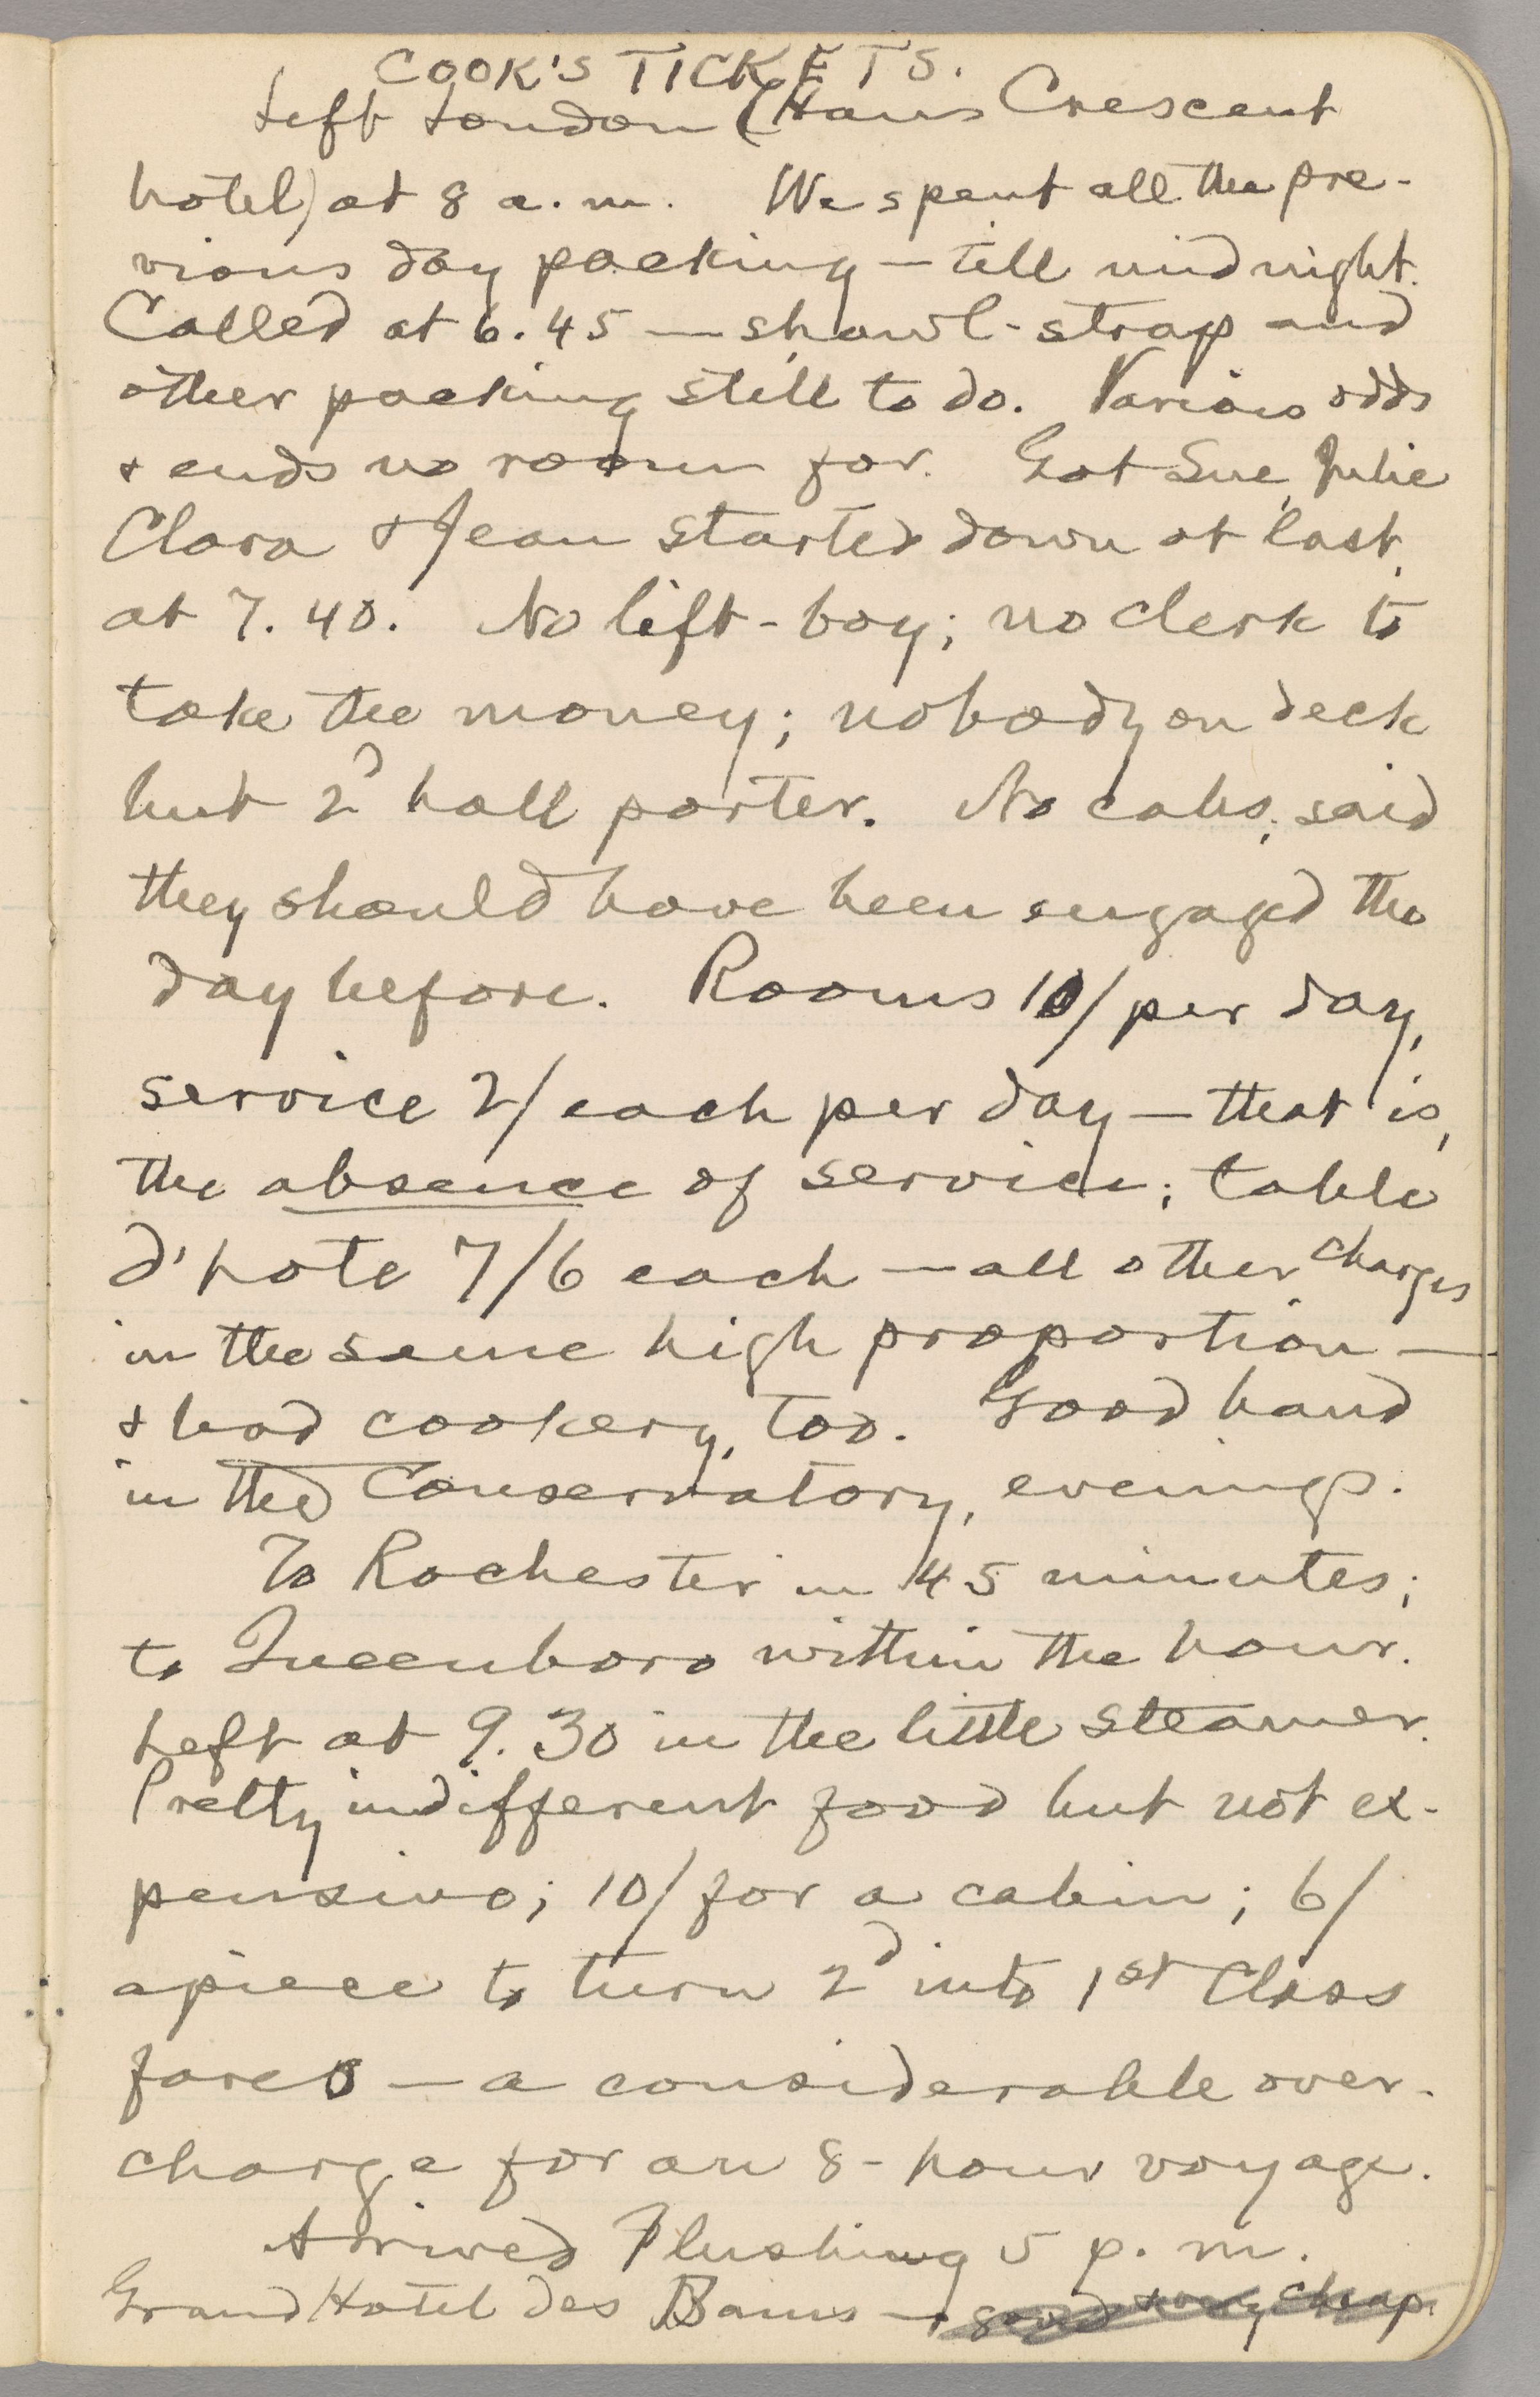 COOK'S TICKETS.
Left London (Hans Crescent
hotel) at 8 a.m. We spent all the pre-
vious day packing — till midnight.
Called at 6.45 — shawl-strap and
other packing still to do. Various odds
& ends no room for. Got Sue, Julie
Clara & Jean started down at last,
at 7.40. No lift-boy; no clerk to
take the money; nobody on deck
but 2d hall porter. No cabs; said
they should have been engaged the
day before. Rooms 10/ per day,
service 2/ each per day — that is,
the absence of service; table
d'hote 7/6 each — all other charges
in the same high proportion —
& bad cookery, too. Good band
in the Conservatory, evenings.
To Rochester in 45 minutes;
to Queenboro within the hour.
Left at 9.30 in the little steamer.
Pretty indifferent food but not ex-
pensive; 10/ for a cabin; 6/
apiece to turn 2d into 1st Class
fares — a considerable over-
charge for an 8-hour voyage.
Arrived Flushing 5 p.m.
Grand Hotel des Bains — good & very cheap.